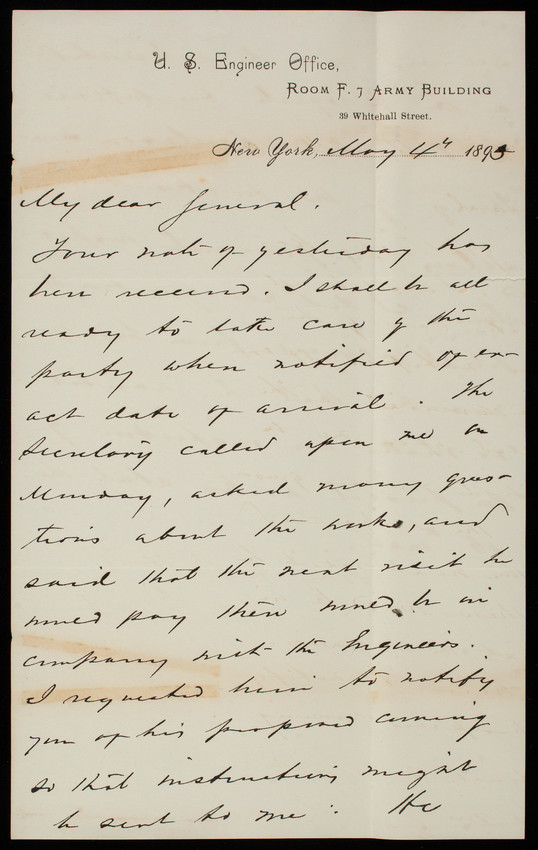 U. S. Engineer Office,
Room F. 7 Army Building
39 Whitehall Street.
New York, May 4th 1893
My dear General.
Your note of yesterday has
been received. I shall be all
ready to take care of the
party when notified of ex-
act date of arrival. The
Secretary called upon me on
Monday, asked many ques-
tions about the works, and
said that the next visit he
would pay there would be in
company with the Engineers.
I requested him to notify
you of his proposed coming
so that instructions might
be sent to me. He